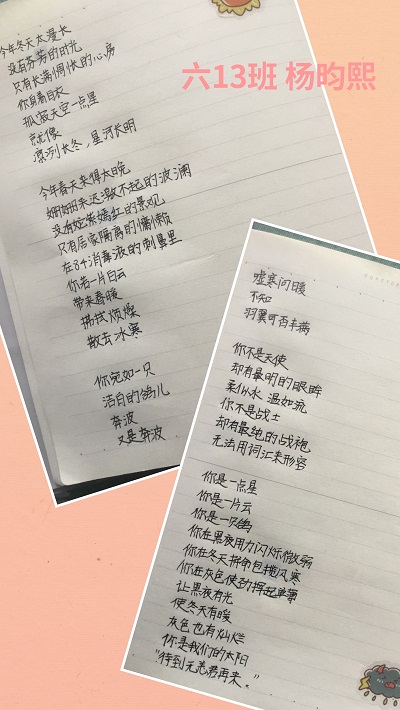 六13班 杨昀熙
今年冬天太漫长
没有芬芳的时光
只有长满惆怅的心房
你身着白衣
孤寂天空一点星
就像
凛冽长冬,星河长明
今年春天来得太晚
姗姗来迟激不起的波澜
没有姹紫嫣红的景观
只有居家隔离的慵懒
在84消毒液的刺鼻里
你若一片白云
带来春暖
拂拭烦燥
散去冰寒
你宛如一只
洁白的鸽儿
奔波
又是奔波
嘘寒问暖
不知
羽翼可否丰满
你不是天使
却有最明的眼眸
柔似水 温如流
你不是战士
却有最纯的战袍
无法用词汇来形容
你是一点星
你是一片云
你是一只鸽
你在黑夜用力闪烁微弱
你在冬天拼命包揽风寒
你在灰色使劲挥起单薄
让黑夜有光
使冬天有暖
灰色也有灿烂
你是我们的太阳
"待到无恙君再来。"